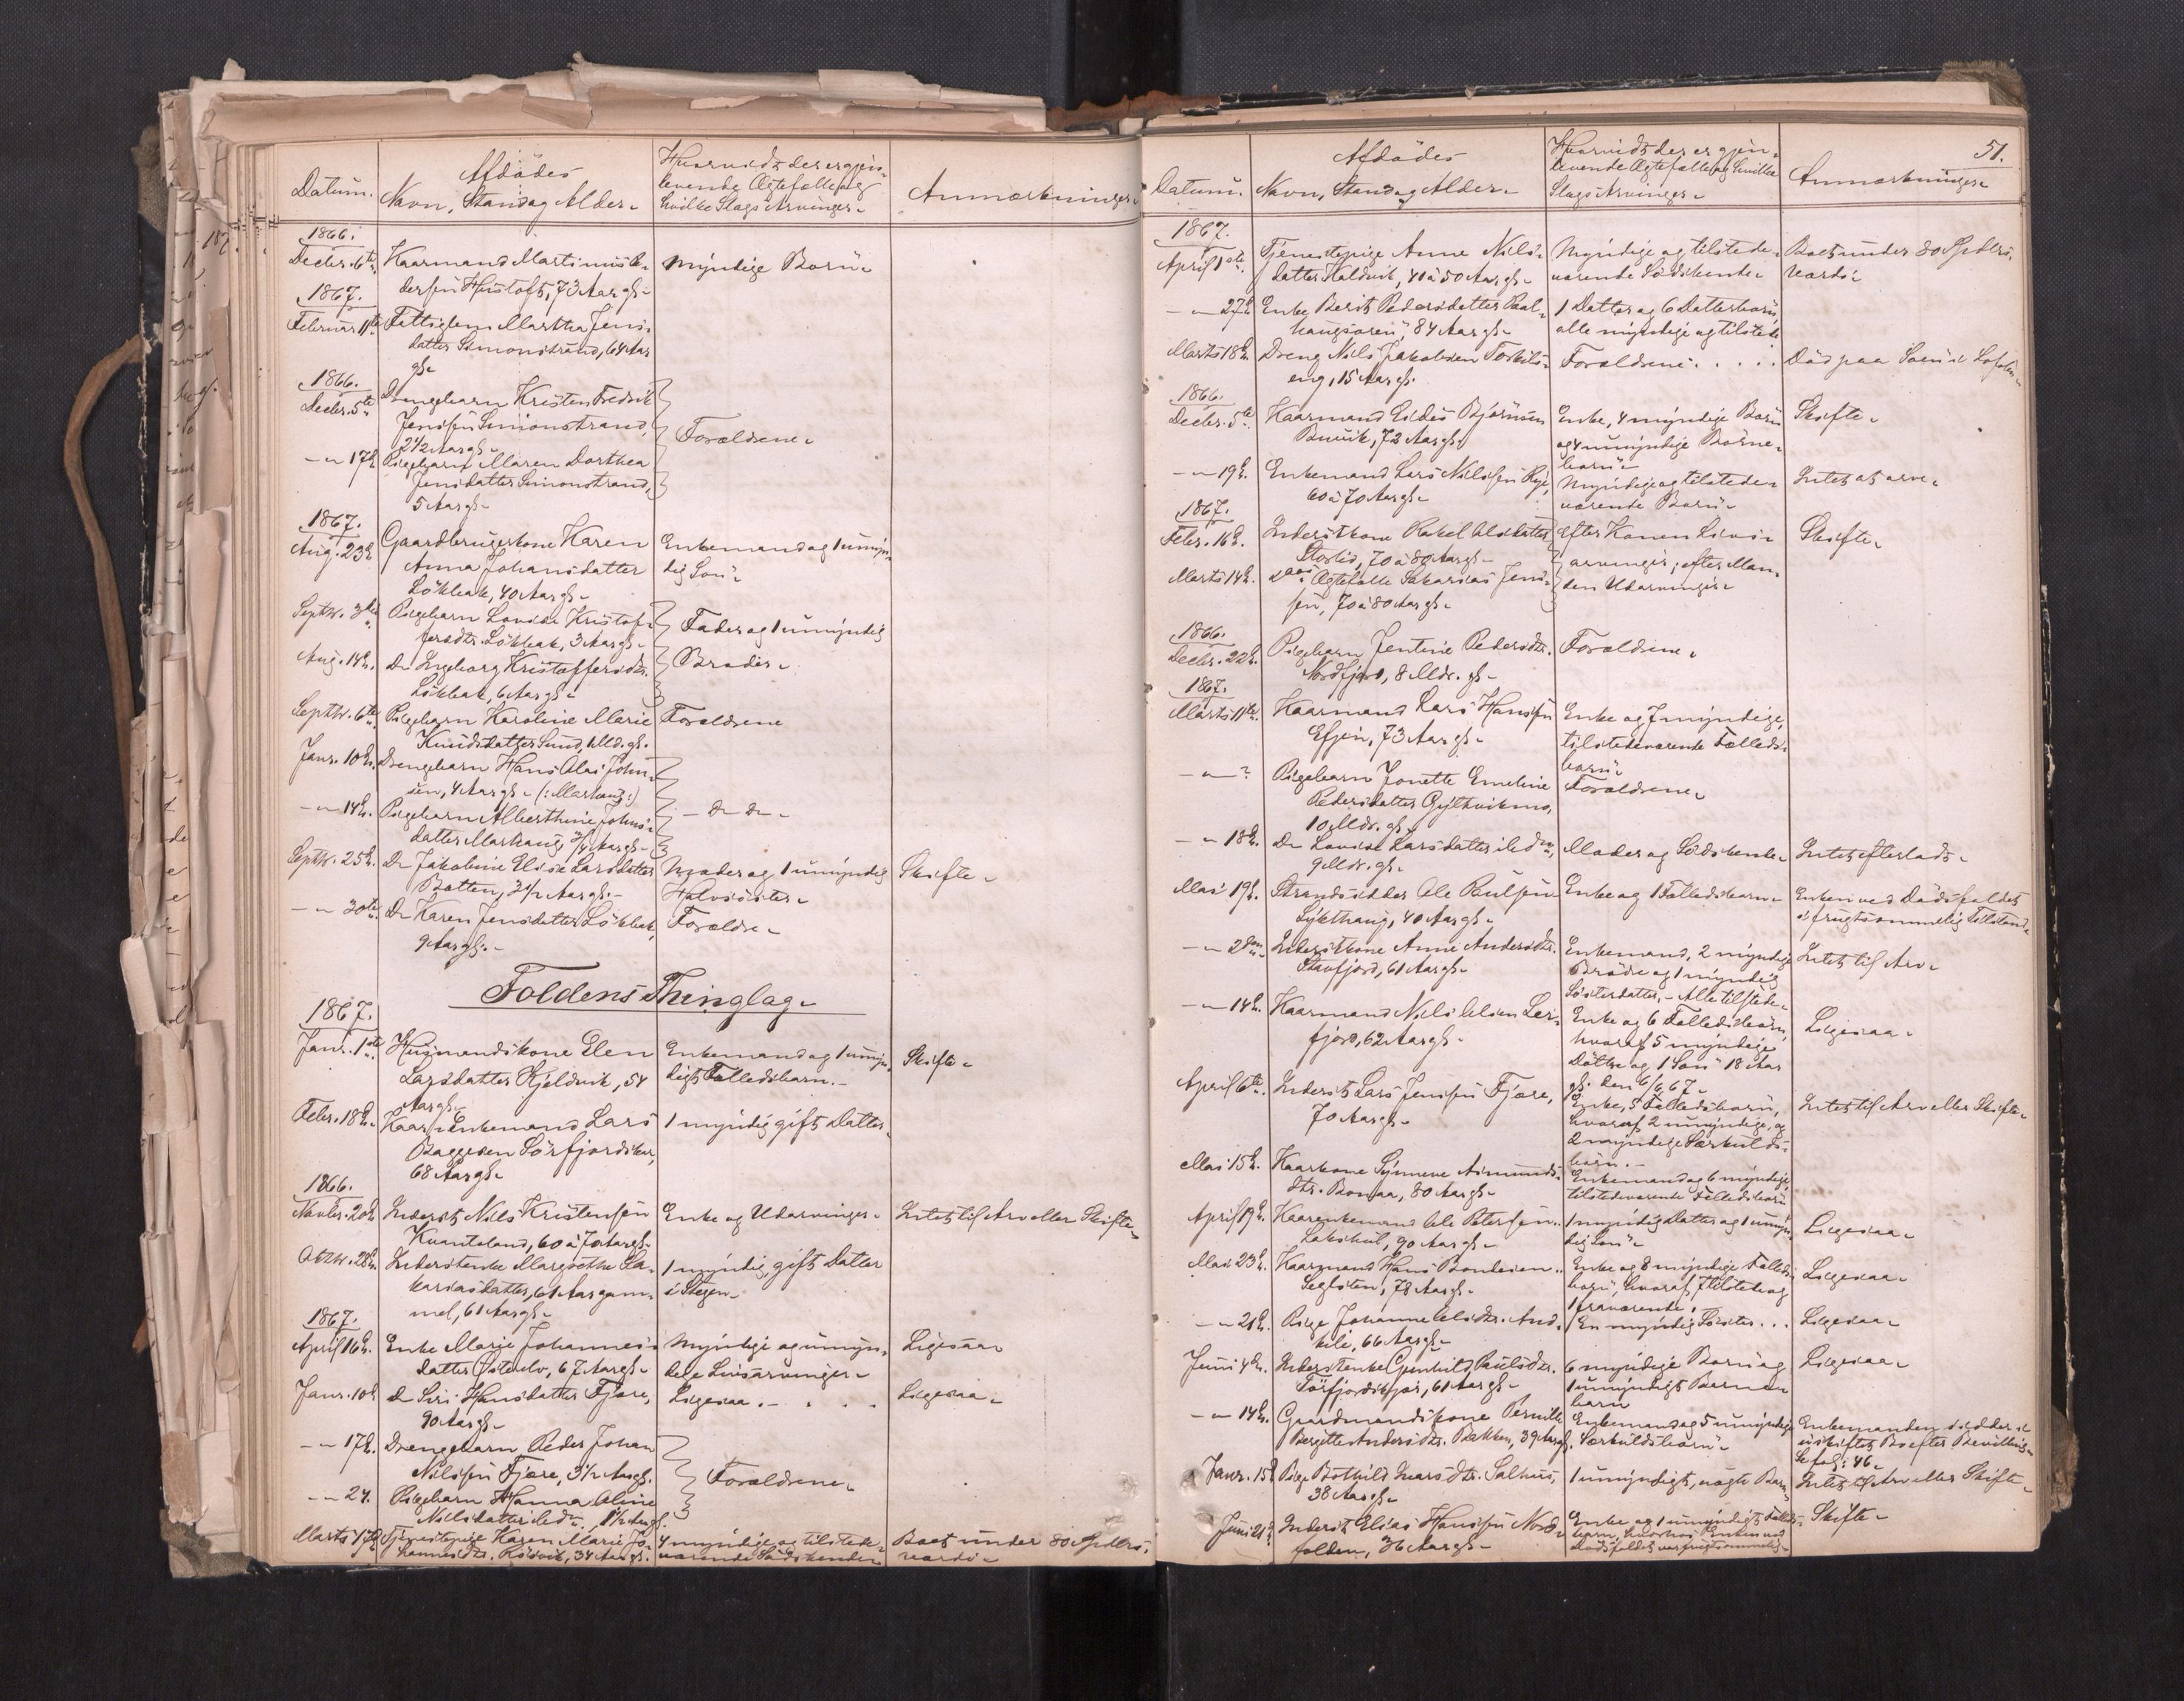 Datum.
Afdødes
Navn, Stand og Alder.
Hvorvidt der er gjen-
levende Ægtefælle og
hvilke Slags Arvinger.
Anmærkninger.
1866.
Decbr. 6te
Kaarmand Martinus
dersen Hustoft, 73 Aar gl.
myndige Børn.
1867.
Februar 11te
Fattiglem Martha Jens-
datter Simonstrand, 64 Aar
gl.
1866.
Decbr. 5te
Drengebarn Kristen Fredrik
Jenssen Simonstrand,
2 1/2 Aar gl.
Forældrene.
- " 17de
Pigebarn Maren Dorthea
Jensdatter Simonstrand,
5 Aar gl.
1867.
Aug. 23de
Gaardbrugerkone Karen
Anna Johansdatter
Løkbak, 40 Aar gl.
Enkemand og 1 umyn-
dig Søn.
Septbr. 3die
Pigebarn Lovise Kristof-
fersdtr. Løkbak, 3 Aar gl.
Fader og 1 umyndig
Aug. 14de
Do Ingeborg Kristoffersdtr.
Løkbak, 6 Aar gl.
Broder.
Septbr. 6te
Pigebarn Karoline Marie
Knudsdatter Sund, 1 Md. gl.
Forældrene
Janr. 10de
Drengebarn Hans Olai John-
sen, 4 Aar gl. (: Markhaug :)
- " 14de
Pigebarn Alberthine Johns-
datter Markhaug, 3/4 Aar gl.
- do do -
Septbr. 25de
Do Jakobine Elise Larsdatter
Botten, 2 1/2 Aar gl.
Moder og 1 umyndig
Halvsøster.
Skifte.
- " 30te
Do Karen Jensdatter Løkbak,
9 Aar gl.
Forældre.
Foldens Thinglag.
1867.
Janr. 1ste
Husmandskone Elen
Larsdatter Kjeldvik, 54
Aar gl.
Enkemand og 1 umyn-
digt Fælledsbarn.
Skifte.
Febr. 18de
Kaarenkemand Lars
Baggesen Sørfjordskar,
68 Aar gl.
1 myndig gift Datter.
1866.
Novbr. 20de
Inderst Nils Kristensen
Kvantoland, 60 à 70 Aar gl.
Enke og Udarvinger.
Intet til Arv eller Skifte.
Oktbr. 28de
Inderstenke Margrethe Sa-
kariasdatter, 61 Aar gam-
mel, 61 Aar gl.
1 myndig, gift Datter
i Stegen.
1867.
April 16de
Enke Marie Johannes-
datter Østerelv, 67 Aar gl.
Myndige og umyn-
dige Livsarvinger.
Ligesaa.
Janr. 10de
Do Siri Hansdatter Fjære,
90 Aar gl.
Ligesaa. . . .
Ligesaa.
- " 17de
Drengebarn Peder Johan
Nilssen Fjære, 3 1/2 Aar gl.
- " 24.
Pigebarn Hanna Oline
Nilsdatter ibdm. 1 1/2 Aar gl.
Forældrene.
Marts 17de
Tjenestepige Karen Marie Jo-
hannesdtr. Røsvik, 34 Aar gl.
4 myndige og tilstede-
værende Sødskende.
Boet under 80 Spdlrs.
værdi.
51.
Datum.
Afdødes
Navn, Stand og Alder.
Hvorvidt der er gjen-
levende Ægtefælle og hvilke
Slags Arvinger.
Anmærkninger.
1867.
April 1ste
Tjenestepige Anne Nils-
datter Kaldvik, 40 à 50 Aar gl.
Myndige og tilstede-
værende Sødskende.
Boet under 80 Spdlrs.
værdi.
- " 27de
Enke Berit Pedersdatter
haugsøren, 84 Aar gl.
1 Datter og 6 Datterbørn,
alle myndige og tilstede
Marts 18de
Dreng Nils Jakobsen Torkils-
eng, 15 Aar gl.
Forældrene. . . . .
Død paa Søen i Lofoten.
1866.
Decbr. 5te
Kaarmand Eides Bjørnsen
72 Aar gl.
Enke, 4 myndige Børn
og 4 umyndige Børne-
børn.
Skifte.
- " 19de
Enkemand Lars Nilssen
60 à 70 Aar gl.
Myndige og tilstede-
værende Børn.
Intet at arve.
1867.
Febr. 16de
Inderstkone Rakel Olsdatter
Storlid, 70 à 80 Aar gl.
Efter Konen Livs-
arvinger; efter Man-
den Udarvinger.
Skifte.
Marts 14de
Ægtefælle Sakarias Jens-
sen, 70 à 80 Aar gl.
1866.
Decbr. 22de
Pigebarn Jentine Pedersdtr.
Nordfjord, 8 Mdr. gl.
Forældrene.
1867.
Marts 11te
Kaarmand Lars Hanssen
Efjen, 73 Aar gl.
Enke og 7 myndige,
tilstedeværende Fælleds-
børn.
- " ?
Pigebarn Jonette Emeline
Pedersdatter Gyltvikmo,
10 Mdr. gl.
Forældrene.
- " 18de
Do Lovise Larsdatter ibdm.
9 Mdr. gl.
Moder og Sødskende.
Intet efterladt.
Mai 19de
Strandsidder Ole Paulsen
Lykthaug, 40 Aar gl.
Enke og 1 Fælledsbarn.
Enken ved Dødsfaldet
i frugtsommelig Tilstand.
- " 2den
Inderstkone Anne Andersdtr.
Stavfjord, 61 Aar gl.
Enkemand, 2 myndige
Brødre og 1 myndig
Søsterdatter. - Alle tilstede.
Intet til Arv.
- " 14de
Kaarmand Nils Olsen Ler-
fjord, 62 Aar gl.
Enke og 6 Fælledsbørn,
hvoraf 5 myndige
Døttre og 1 Søn 18 Aar
gl. den 6/6 67.
Ligesaa.
April 6te
Inderst Lars Jenssen Fjære,
70 Aar gl.
Enke, 5 Fælledsbørn,
hvoraf 2 umyndige, og
2 myndige Særkulds-
børn.
Intet til Arv eller Skifte.
Mai 15de
Kaarkone Synneve Asmunds-
dtr. Bonaa, 80 Aar gl.
Enkemand og 6 myndige,
tilstedeværende Fælledsbørn
April 19de
Kaarenkemand Ole Petersen
Lakshul, 90 Aar gl.
1 myndig Datter og 1 umyn-
dig Søn.
Ligesaa.
Mai 23de
Kaarmand Hans Bonsen
Seglsten, 78 Aar gl.
Enke og 8 myndige Fælleds-
børn, hvoraf 7 tilstede og
1 fraværende.
Ligesaa.
- " 21de
Pige Johanne Olsdtr. And-
kile, 66 Aar gl.
En myndig Søster . . .
Ligesaa.
Juni 4de
Inderstenke Gunhild Paulsdtr.
Tørfjordskjær, 61 Aar gl.
6 myndige Børn og
1 umyndigt Barne-
barn
Ligesaa.
- " 14de
Gaardmandskone Pernille
Bergitte Andersdtr. Bakken, 39 Aar gl.
Enkemand og 5 umyndige
Særkuldsbørn.
Enkemanden sidder i
uskiftet Bo efter Bevilling
Se fol: 46.
Janr. 15de
Pige Bothild Larsdtr. Salhus,
38 Aar gl.
1 umyndigt, uægte Barn.
Intet til Arv eller Skifte.
Juni 21de
Inderst Elias Hanssen Nord-
folden, 36 Aar gl.
Enke og 1 umyndigt Fælleds-
barn, hvorhos Enken ved
Dødsfaldet var frugtsommelig.
Skifte.